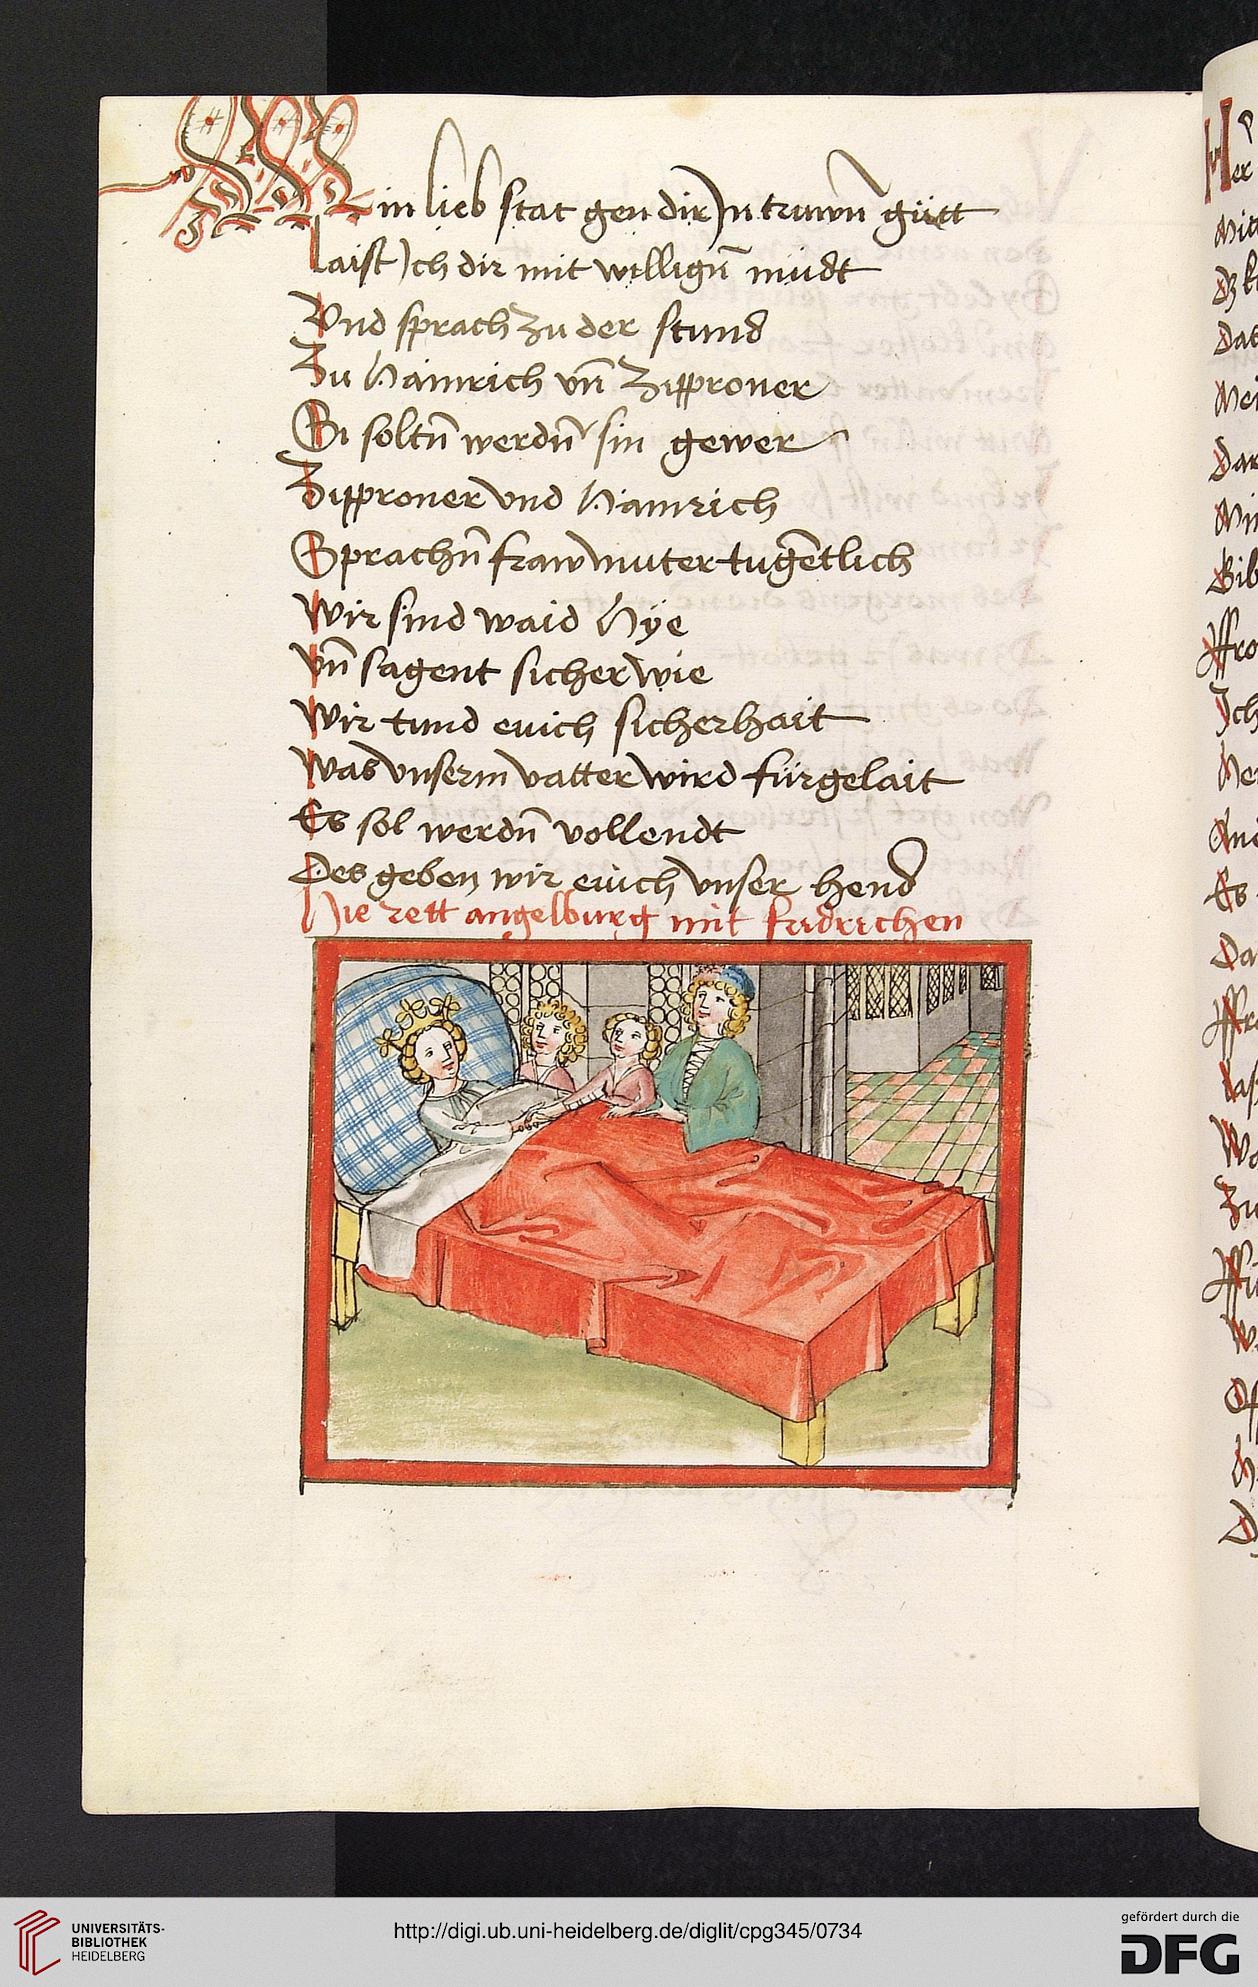 Min lieb stat gen dir Jn truwñ gůtt
Laist Jch dir mit willigñ můdt
Vnd sprach zu der stund
Zu Hainrich vñ Zipproner
Si soltñ werdñ sin gewer
Zipproner vnd Hainrich
Sprachñ fraw muter tugẽtlich
Wir sind waid Hÿe
Vñ sagent sicher wie
Wir tund euich sicherhait
Was vnserm vatter wird fürgelait
Es sol werdñ vollendt
Des geben wir euich vnser hend
Hie rett angelburg mit fridrichen
UNIVERSITÄTS-
BIBLIOTHEK
HEIDELBERG
http://digi.ub.uni-heidelberg.de/diglit/cpg345/0734
gefördert durch die
DFG